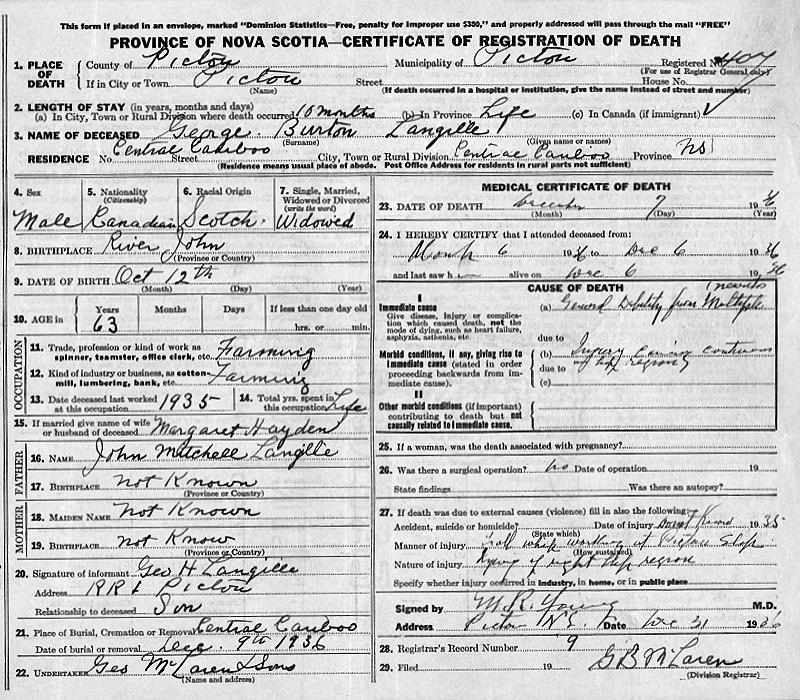 This form if placed in an envelope, marked "Dominion Statistics—Free, penalty for improper use $300," and properly addressed will pass through the mail "FREE"
PROVINCE OF NOVA SCOTIA—CERTIFICATE OF REGISTRATION OF DEATH
1. PLACE OF DEATH
County of Pictou Municipality of Pictou Registered No. 407
(For use of Registrar General only)
If in City or Town Pictou Street House No.
(Name) (If death occurred in a hospital or institution, give the name instead of street and number)
2. LENGTH OF STAY (in years, months and days)
(a) In City, Town or Rural Division where death occurred 10 months (b) In Province Life (c) In Canada (if immigrant)
3. NAME OF DECEASED George Burton Langille
(Surname) (Given name or names)
RESIDENCE No. Central Cariboo Street City, Town or Rural Division Central Cariboo Province NS
(Residence means usual place of abode. Post Office Address for residents in rural parts not sufficient)
4. Sex Male
5. Nationality (Citizenship) Canadian
6. Racial Origin Scotch
7. Single, Married, Widowed or Divorced (write the word) Widowed
8. BIRTHPLACE River John
(Province or Country)
9. DATE OF BIRTH Oct 12th
(Month) (Day) (Year)
10. AGE in Years 63 Months Days If less than one day old hrs. or min.
OCCUPATION
11. Trade, profession or kind of work as spinner, teamster, office clerk, etc. Farming
12. Kind of industry or business, as cotton-mill, lumbering, bank, etc. Farming
13. Date deceased last worked at this occupation 1935
14. Total yrs. spent in this occupation Life
15. If married give name of wife or husband of deceased Margaret Hayden
FATHER
16. NAME John Mitchell Langille
17. BIRTHPLACE not Known
(Province or Country)
MOTHER
18. MAIDEN NAME not Known
19. BIRTHPLACE not Know
(Province or Country)
20. Signature of informant Geo H Langille
Address RR1 Pictou
Relationship to deceased Son
21. Place of Burial, Cremation or Removal Central Cariboo
Date of burial or removal Dec. 9th 1936
22. UNDERTAKER Geo McLaren & Sons
(Name and address)
MEDICAL CERTIFICATE OF DEATH
23. DATE OF DEATH December 7 1936
(Month) (Day) (Year)
24. I HEREBY CERTIFY that I attended deceased from:
March 6 1936 to Dec 6 1936
and last saw h alive on Dec 6 1936
CAUSE OF DEATH
I
Immediate cause
Give disease, injury or complication which caused death, not the mode of dying, such as heart failure, asphyxia, asthenia, etc.
(a) General Debility from Multiple neuritis
due to
Morbid conditions, if any, giving rise to immediate cause (stated in order proceeding backwards from immediate cause).
(b) Injury
due to of hip region
(c)
II
Other morbid conditions (if important) contributing to death but not causally related to immediate cause.
25. If a woman, was the death associated with pregnancy?
26. Was there a surgical operation? no Date of operation 19
State findings Was there an autopsy?
27. If death was due to external causes (violence) fill in also the following:
Accident, suicide or homicide? Date of injury 1935
(State which)
Manner of injury Fall while working at Pictou Shop
(How sustained)
Nature of injury Injury of right hip region
Specify whether injury occurred in industry, in home, or in public place
Signed by M.R. Young M.D.
Address Pictou N.S. Date Dec 21 1936
28. Registrar's Record Number 9
29. Filed 19 G B McLaren
(Division Registrar)